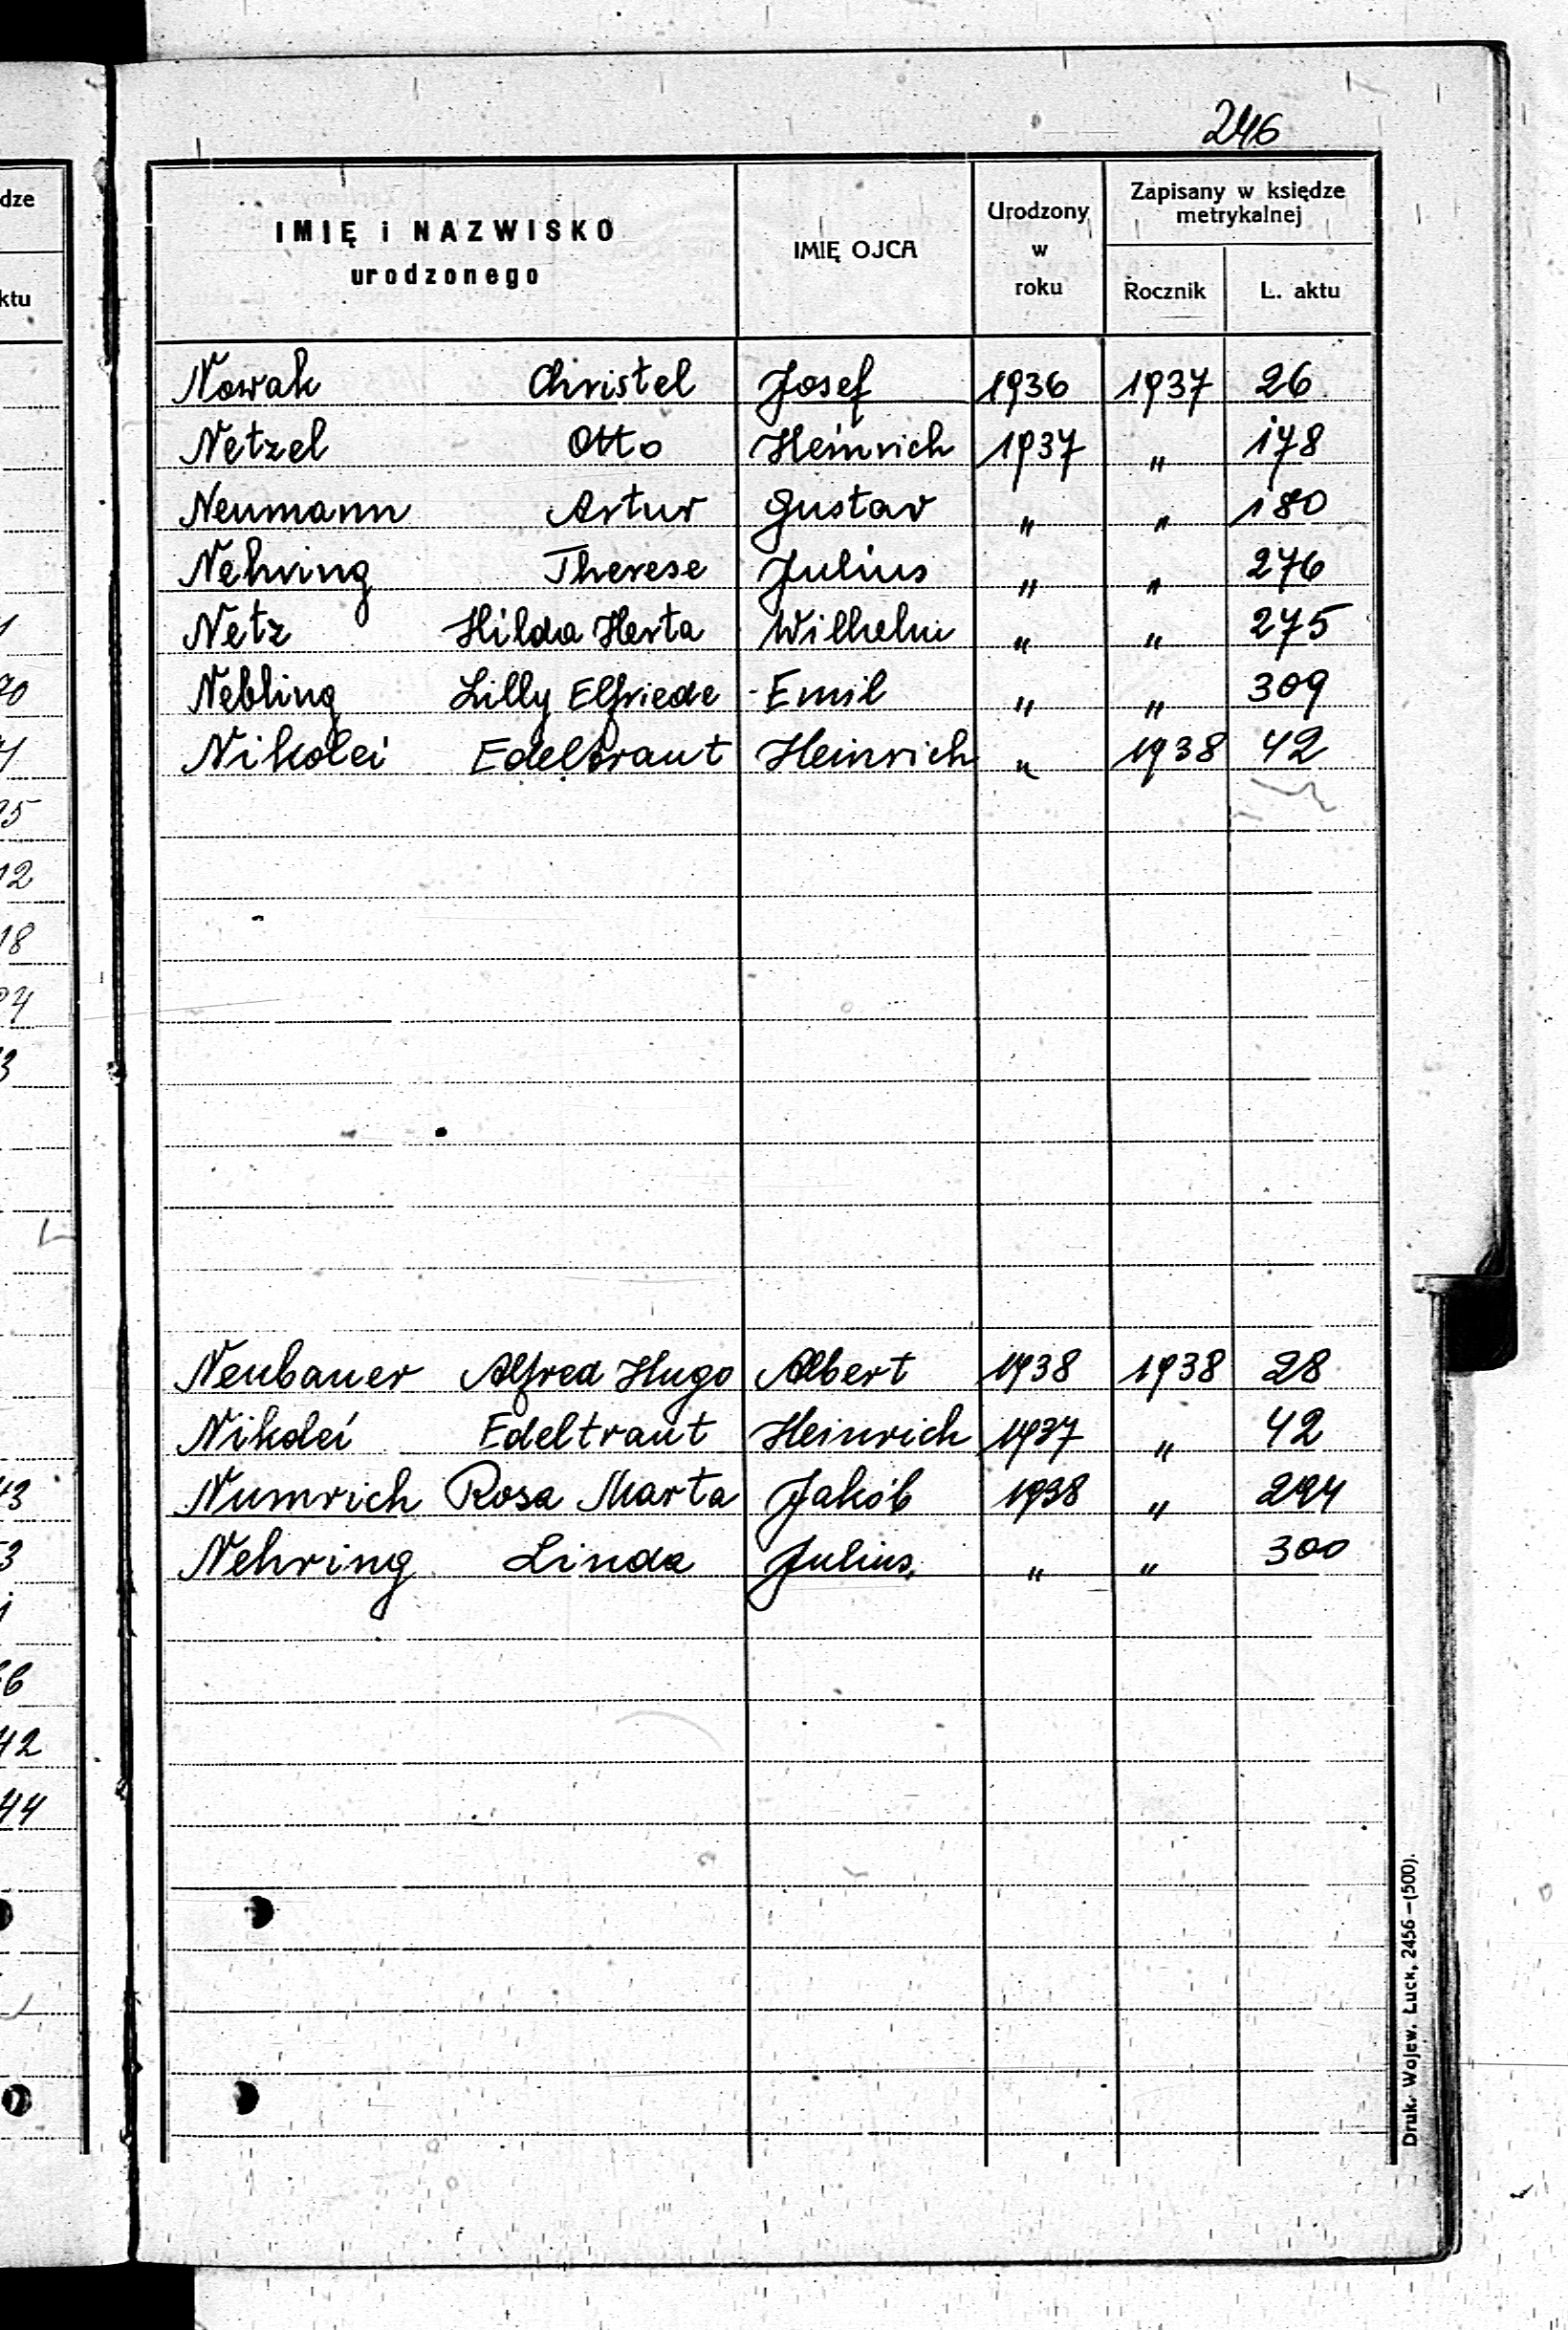 246
dze
ktu
IMIĘ i NAZWISKO urodzonego
IMIĘ OJCA
Urodzony w roku
Zapisany w księdze metrykalnej
Rocznik
L. aktu
Nowak Christel Josef 1936 1937 26
Netzel Otto Heinrich 1937 " 178
Neumann Artur Gustav " " 180
Nehring Therese Julius " " 276
Netz Hilda Herta Wilhelm " " 275
Nebling Lilly Elfriede Emil " " 309
Nikolei Edeltraut Heinrich " 1938 42
Neubauer Alfred Hugo Albert 1938 1938 28
Nikolei Edeltraut Heinrich 1937 " 42
Numrich Rosa Marta Jakób 1938 " 294
Nehring Linda Julius " " 300
Druk. Wojew. Łuck, 2456—(500).